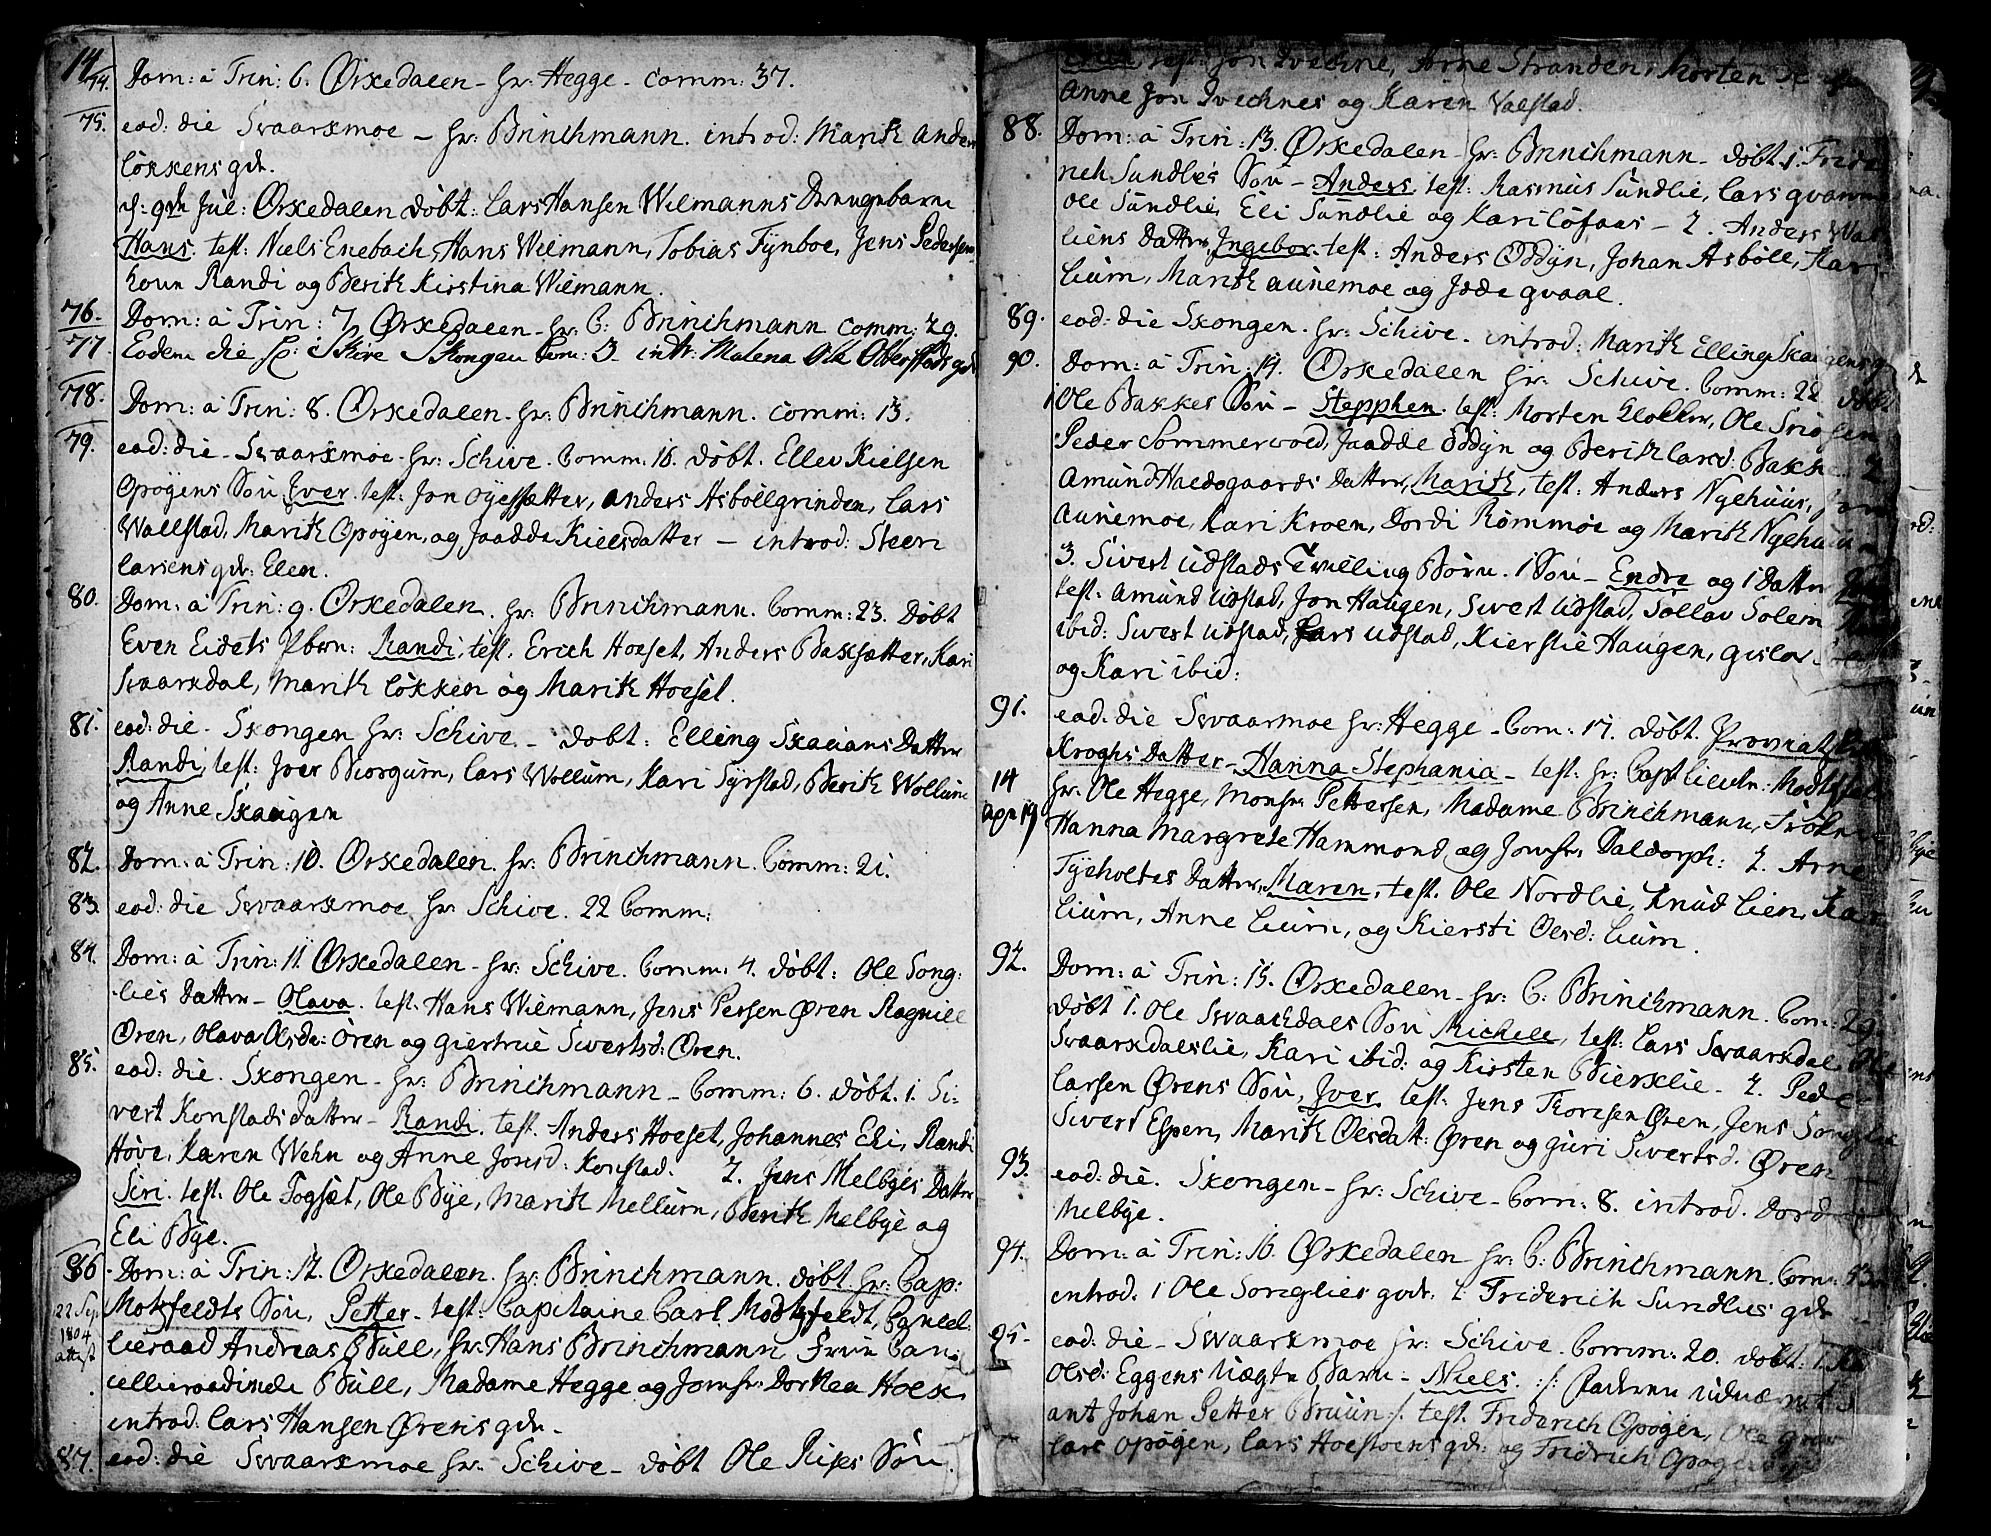 14
74. Dom: à Trin: 6. Ørkedalen - Hr: Hegge - Comm: 37.
75. eod: die Svaarkmoe - Hr: Brinchmann. introd: Marith Anders
Løkkens qv.
d: 9de Jul: Ørkedalen døbt: Lars Hansen Wiemanns Drengebarn
Hans. test: Niels Enebach, Hans Wiemann, Tobias Fynboe, Jens Pedersens
kone Randi og Berith Kirstina Wiemann.
76. Dom: à Trin: 7. Ørkedalen - Hr: C: Brinchmann Comm: 29.
77. Eodem die Hr: Schive Skongen Com: 3. intr: Malena Ole Olberstads qv
78. Dom: à Trin: 8. Ørkedalen - Hr: Brinchmann. Comm: 13.
79. eod: die - Svaarkmoe - Hr: Schive. Comm: 16. døbt. Ellev Kielsen
Opøgens Søn Iver. test: Jon Øyessetter, Anders Asbøllgrinden, Lars
Wallstad, Marith Opøyen, og Jaadde Kielsdatter - introd: Steen
Larsens qv: Elen.
80. Dom: à Trin: 9. Ørkedalen. Hr: Brinchmann. Comm: 23. Døbt
Even Eidets Pbrn: Randi, test. Erich Hoeset, Anders Baksetter, Kari
Svaarkdal, Marith Løkken og Marith Hoeset.
81. eod: die - Skongen Hr: Schive - døbt: Elling Skaugans Datter
Randi, test: Iver Biorgum, Lars Wollum, Kari Syrstad, Berith Wollum
og Anne Skaugen
82. Dom: à Trin: 10. Ørkedalen. Hr: Brinchmann. Comm: 21.
83. eod: die Svaarkmoe Hr: Schive. 22 Comm:
84. Dom: à Trin: 11. Ørkedalen - Hr: Schive. Comm: 4. døbt: Ole Song-
lies Datter - Olava. test. Hans Wiemann, Jens Persen Øren Ragnill
Øren, Olava Olsdr: Øren og Giertrue Sivertsd: Øren.
85. eod: die. Skongen - Hr: Brinchmann - Comm: 6. døbt. 1. Si-
vert Konstads datter - Randi. test. Anders Hoeset, Johannes Eli, Randi
Hove, Karen Wehn og Anne Jonsd: Konstad. 2. Jens Melbyes Datter
Siri. test. Ole Togset, Ole Bye, Marith Mellum, Berith Melbye og
Eli Bye.
86 Dom: à Trin: 12. Ørkedalen. Hr: Brinchmann. døbt. Hr: Cap:
22 Sep 1804 attest
Motzfeldts Søn, Petter. test. Capitaine Carl Modtzfeldt, Cancel-
lieraad Andreas Büll, Hr: Hans Brinchmann Frue Can-
cellieraadinde Büll, Madame Hegge og Jomfr: Dorthea Hoex
introd. Lars Hansen Ørens qv.
87. eod: die Svaarkmoe Hr: Schive - døbt Ole Rises Søn
test: Jon Qvechne, Arne Stranden, Morten
Anne Jon Qvechnes og Karen Valstad.
88. Dom: à Trin: 13. Ørkedalen - Hr: Brinchmann - døbt 1. Fride
rich Sundlies Søn - Anders, test: Rasmus Sundlie, Lars Qvamm
Ole Sundlie, Eli Sundlie og Kari Løfaas - 2. Anders Wal
liens Datter, Ingebor. test: Anders Oddyn, Johan Asbøll, Kari
Lium, Marith Aunemoe og Jøde Qvaal.
89. eod: die Skongen. Hr: Schive. introd: Marith Elling Skaugens q
90. Dom: à Trin: 14. Ørkedalen Hr: Schive. Comm: 22 døbt
1 Ole Bakkes Søn - Stepphen. test: Morten Klokker, Ole
Peder Sommervold, Jaadde Oddyn og Berith Larsd: Bakke 2
Amund Haedsgaards Datter, Marith, test: Anders Nyehuus,
Aunemoe, Kari Kroen, Dordi Rømmoe og Marith Nyehuus
3. Sivert Udstads Tvilling Børn. 1 Søn - Endre og 1 Datter
test: Amund Udstad, Jon Haugen, Sivert Udstad, Sollav Solem
ibid: Sivert Udstad, Lars Udstad, Kierstie Haugen, Gislov
og Kari ibid:
91. eod: die Svaarmoe Hr: Hegge - Com: 17. døbt.
Kroghs Datter - Hanna Stephania - test: Hr: Capt Lieutn: Modtzfeld
14
Hr. Ole Hegge, Monsr: Pettersen, Madame Brinchmann, Frøken
Hanna Margrete Hammond og Jomfr: Daldorph: 2. Arne
Tyeholtes Datter, Maren, test. Ole Nordlie, Knud Lien, Kar
Lium, Anne Lium, og Kiersti Olsd: Lium.
92. Dom: à Trin: 15. Ørkedalen - Hr: C: Brinchmann. Com: 29.
døbt 1. Ole Svaarkdals Søn Michell, test: Lars Svaarkdal Ole
Svaarkdalslie, Kari ibid: og Kirsten Bierklie - 2. Peder
Larsen Ørens Søn, Iver. test: Jens Thoresen Øren, Jens Songlie
Sivert Espen, Marith Olsdatt: Øren og Guri Sivertsd. Øren
93. eod: die. Skongen - Hr: Schive - Com: 8. introd. Dord
Melbye.
94. Dom: à Trin: 16. Ørkedalen Hr: C: Brinchmann. Com: 43
introd. 1 Ole Songlies qvdr: 2 Friderich Sundlies qvdr
95. eod: die - Svaarkmoe Hr: Schive. Comm: 20. døbt: 1.
Olsd: Eggens Uægte Barn - Niels. :/: Faderen udnævnt
ant Johan Petter Bruun :/: test. Friderich Opøgen, Ole
Lars Opøgen, Lars Hoestoens qv: og Fridrich Opøgens